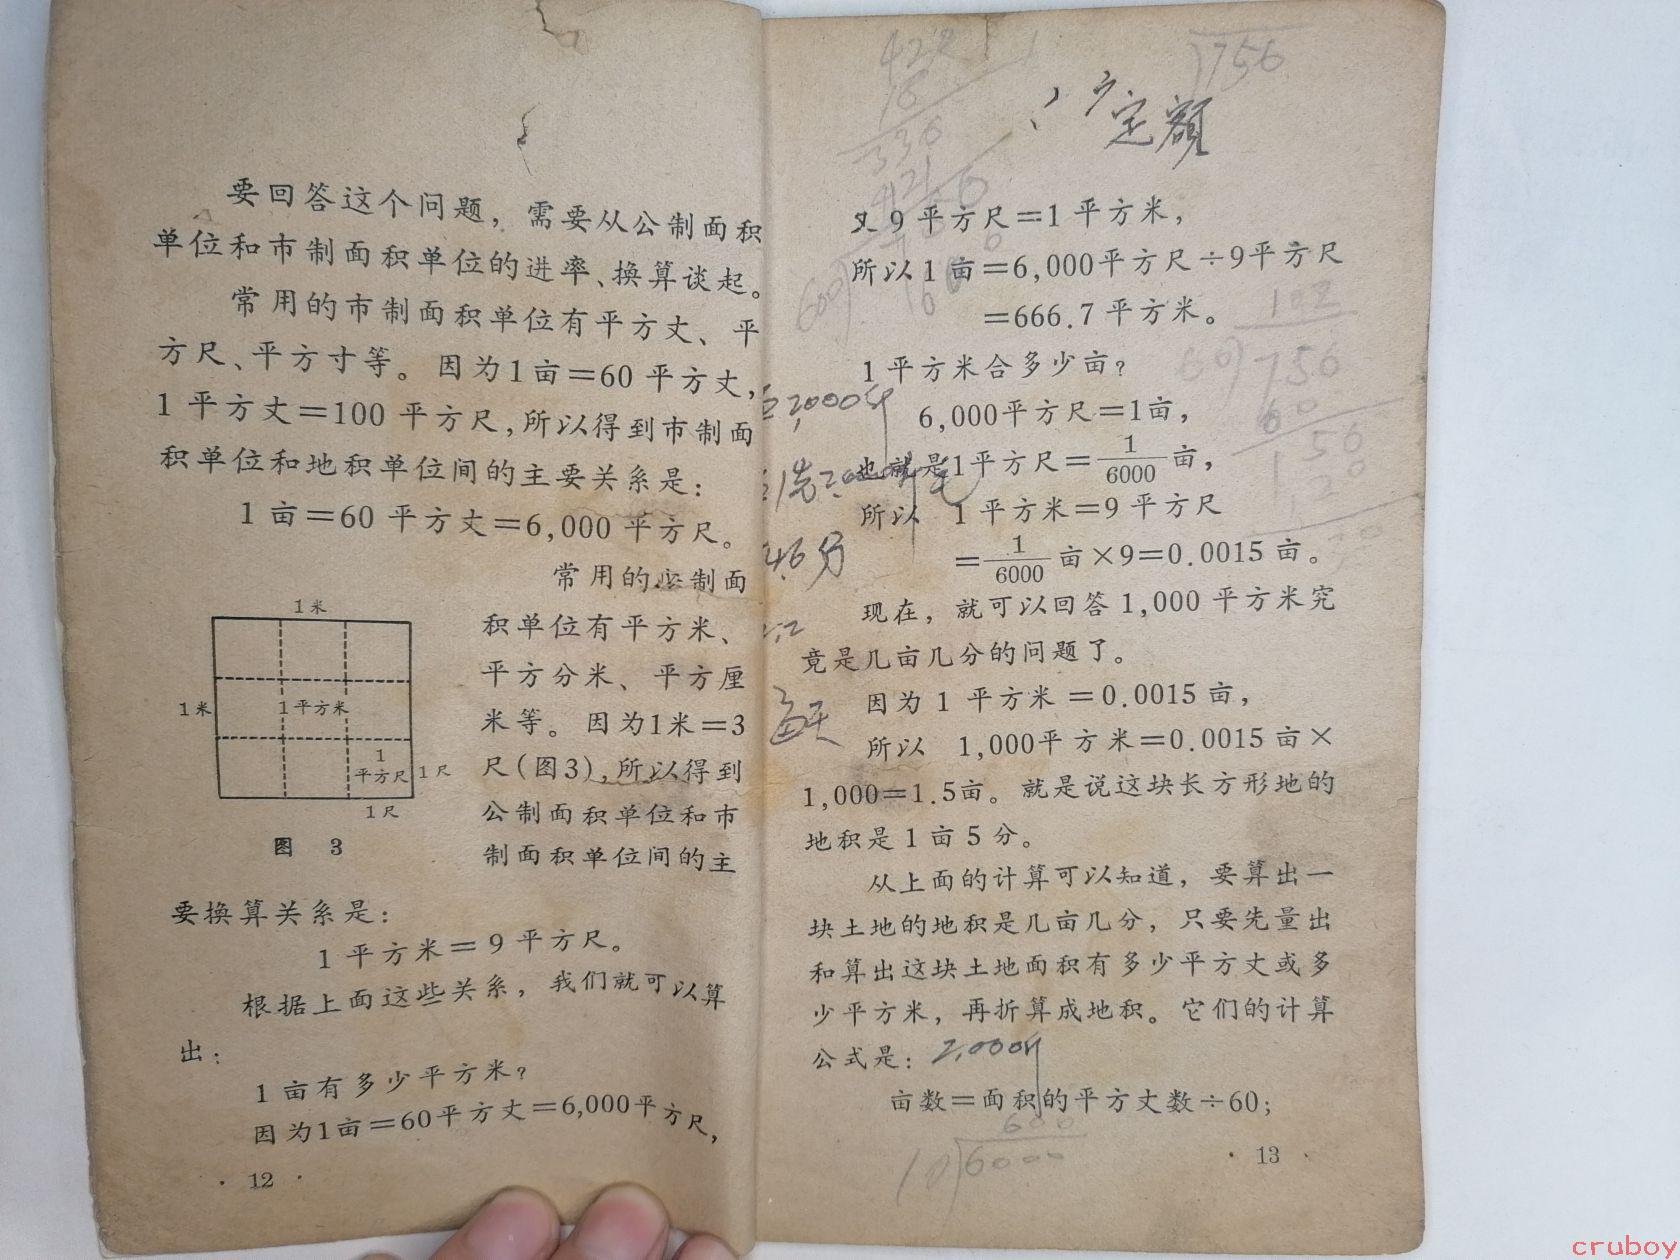 要回答这个问题，需要从公制面积
单位和市制面积单位的进率、换算谈起。
常用的市制面积单位有平方丈、平
方尺、平方寸等。因为1亩＝60平方丈，
1平方丈＝100平方尺，所以得到市制面
积单位和地积单位间的主要关系是：
1亩＝60平方丈＝6,000平方尺。
常用的公制面
积单位有平方米、
平方分米、平方厘
米等。因为1米＝3
尺（图3），所以得到
公制面积单位和市
制面积单位间的主
1米
1米
1平方米
1
平方尺
1尺
1尺
图 3
要换算关系是：
1平方米＝9平方尺。
根据上面这些关系，我们就可以算
出：
1亩有多少平方米？
因为1亩＝60平方丈＝6,000平方尺，
· 12 ·
428
18
336
756
定额
又9平方尺＝1平方米，
所以1亩＝6,000平方尺÷9平方尺
＝666.7平方米。
1平方米合多少亩？
6,000平方尺＝1亩，
也就是1平方尺＝1/6000亩，
所以 1平方米＝9平方尺
＝1/6000亩×9＝0.0015亩。
现在，就可以回答1,000平方米究
竟是几亩几分的问题了。
因为1平方米＝0.0015亩，
所以 1,000平方米＝0.0015亩×
1,000＝1.5亩。就是说这块长方形地的
地积是1亩5分。
从上面的计算可以知道，要算出一
块土地的地积是几亩几分，只要先量出
和算出这块土地面积有多少平方丈或多
少平方米，再折算成地积。它们的计算
公式是：
亩数＝面积的平方丈数÷60；
600
10)6000
· 13 ·
102
60)756
60
4.6分
每天
cruboy